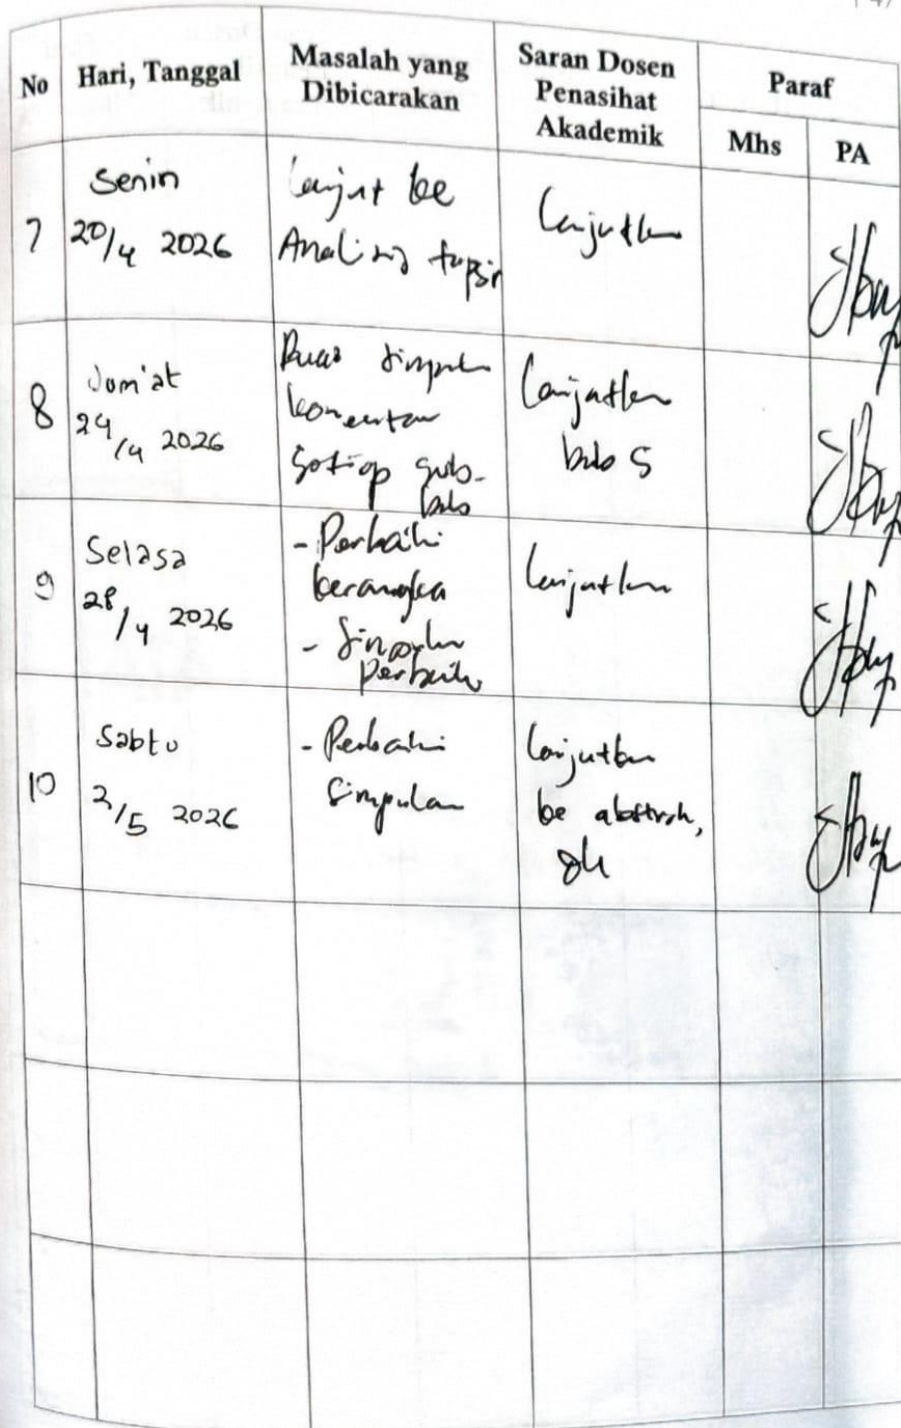 No
Hari, Tanggal
Masalah yang
Dibicarakan
Saran Dosen
Penasihat
Akademik
Paraf
Mhs
PA
7
Senin
20/4 2026
Lanjut ke
Analisis tafsir
Lanjutkan
8
Jum'at
24/4 2026
simpul
komentar
Setiap sub-
bab
Lanjutkan
bab 5
9
Selasa
28/4 2026
- Perbaiki
kerangka
- Simpulan
Perbaiki
Lanjutkan
10
Sabtu
2/5 2026
- Perbaiki
Simpulan
Lanjutkan
ke abstrak,